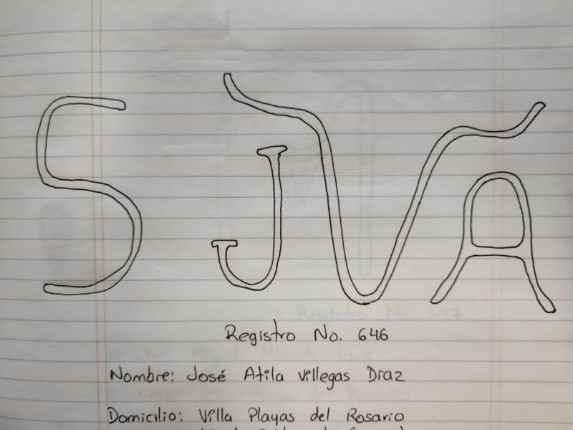 S JVA
Registro No. 646
Nombre: José Atila Villegas Díaz
Domicilio: Villa Playas del Rosario